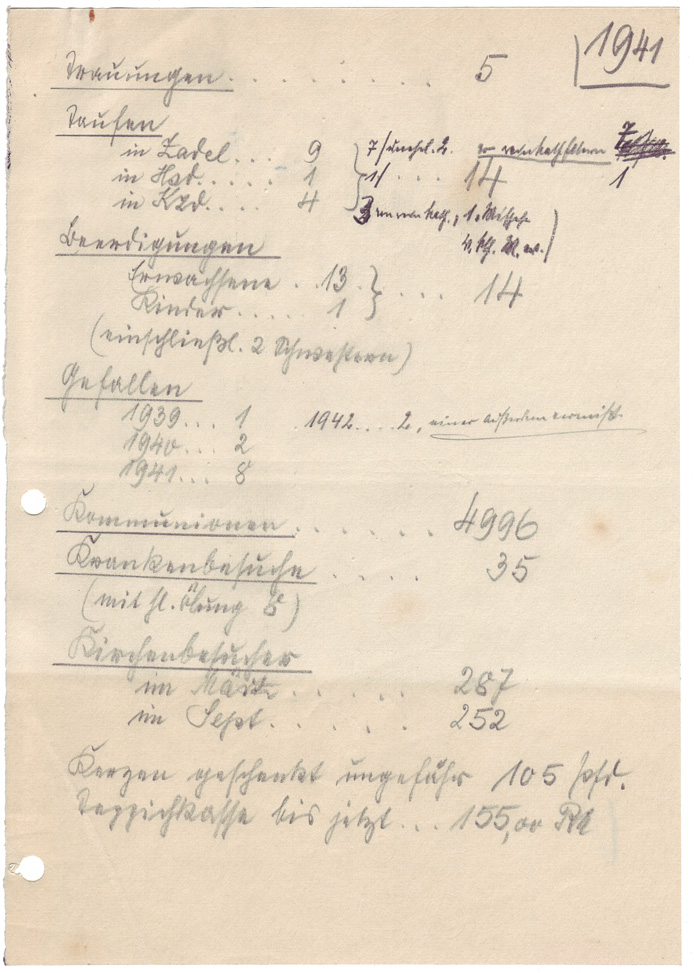 1941
Trauungen . . . . . . . . 5
Taufen
in Zadel . . . 9 7 / unehel. 2. 7
in Hzd. . . . . 1 1/ . . . . 14 1
in Kzd. . . . 4 3 , 1. Mischehe
Beerdigungen
Erwachsene . . 13 } . . . . 14
Kinder . . . . . 1
(einschließl. 2 Schwestern)
Gefallen
1939 . . . 1 1942 . . . . 2, einer außerdem vermißt.
1940 . . . 2
1941 . . . 8
Kommunionen . . . . . . 4996
Krankenbesuche . . . . . 35
(mit hl. Ölung 8)
Kirchenbesucher
im März . . . . . . 287
im Sept. . . . . . 252
Kerzen geschenkt ungefähr 105 Pfd.
Teppichkasse bis jetzt . . . 155,00 RM